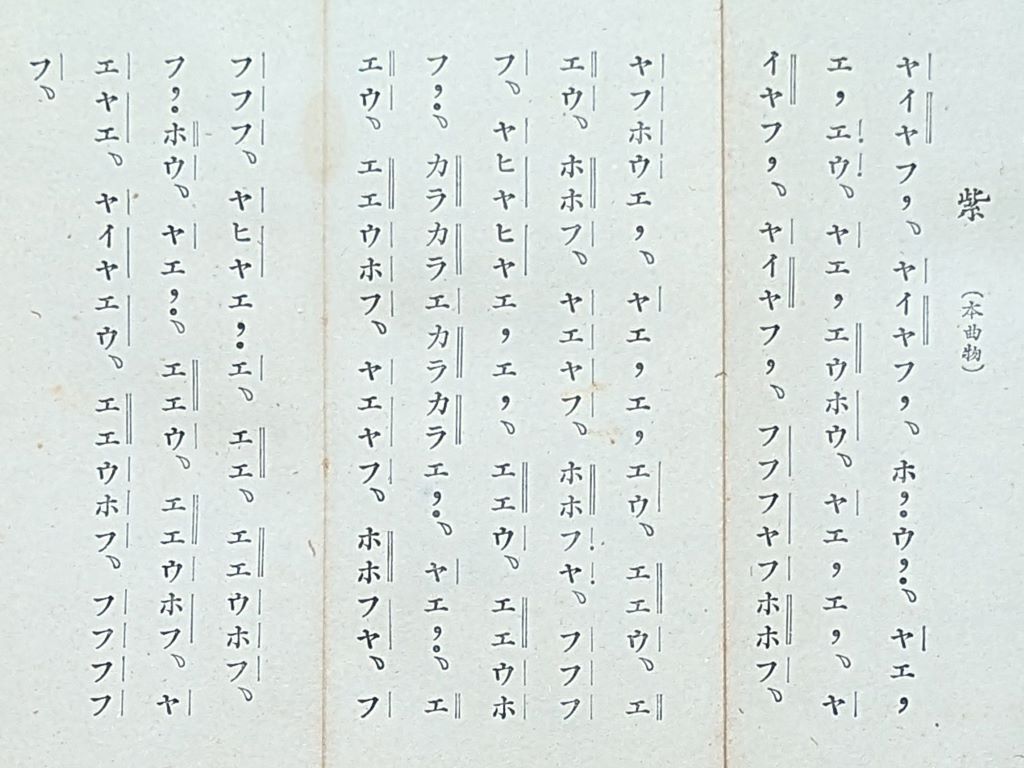 紫 (本曲物)
ヤイヤフ，、ヤイヤフ，、ホ，。ウ，。、ヤエ，
エ，エウ、ヤエ，エウホウ、ヤエ，エ，、ヤ
イヤフ，、ヤイヤフ，、フフフヤフホホフ、
ヤフホウエ，、ヤエ，エ，エウ、エエウ、エ
エウ、ホホフ、ヤエヤフ、ホホフヤ、フフフ
フ、ヤヒヤヒヤエ，エ，、エエウ、エエウホ
フ，。、カラカラエカラカラエ，。、ヤエ，。、エ
エウ、エエウホフ、ヤエヤフ、ホホフヤ、フ
フフフ、ヤヒヤエ，。エ、エエ、エエウホフ、
フ，。ホウ、ヤエ，。、エエウ、エエウホフ、ヤ
エヤエ、ヤイヤエウ、エエウホフ、フフフフ
フ、